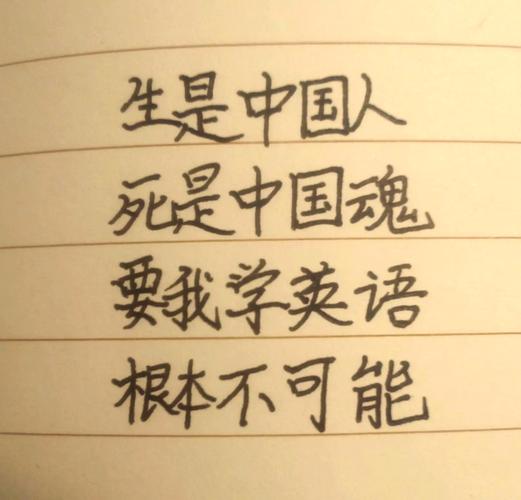 生是中国人
死是中国魂
要我学英语
根本不可能